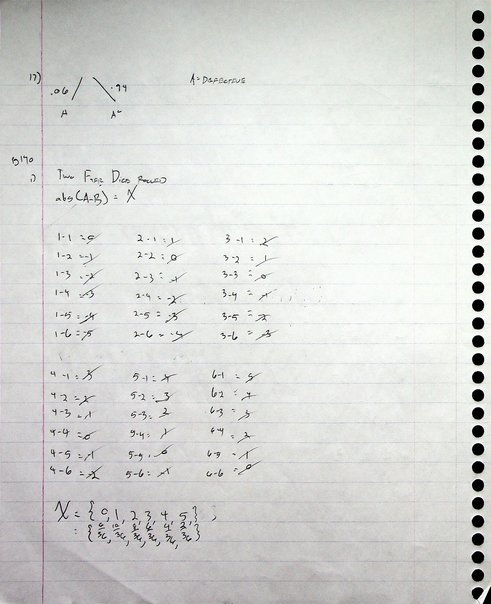 17) .06 .94 A = DEFECTIVE
A Aᶜ
1)
Two FAIR DICE ROLLED
abs(A-B) = X
1-1 = 0 2-1 = 1 3-1 = 2
1-2 = -1 2-2 = 0 3-2 = 1
1-3 = -2 2-3 = -1 3-3 = 0
1-4 = -3 2-4 = -2 3-4 = -1
1-5 = -4 2-5 = -3 3-5 = -2
1-6 = -5 2-6 = -4 3-6 = -3
4-1 = 3 5-1 = 4 6-1 = 5
4-2 = 2 5-2 = 3 6-2 = 4
4-3 = 1 5-3 = 2 6-3 = 3
4-4 = 0 5-4 = 1 6-4 = 2
4-5 = -1 5-5 = 0 6-5 = 1
4-6 = -2 5-6 = -1 6-6 = 0
X = {0, 1, 2, 3, 4, 5,} ,